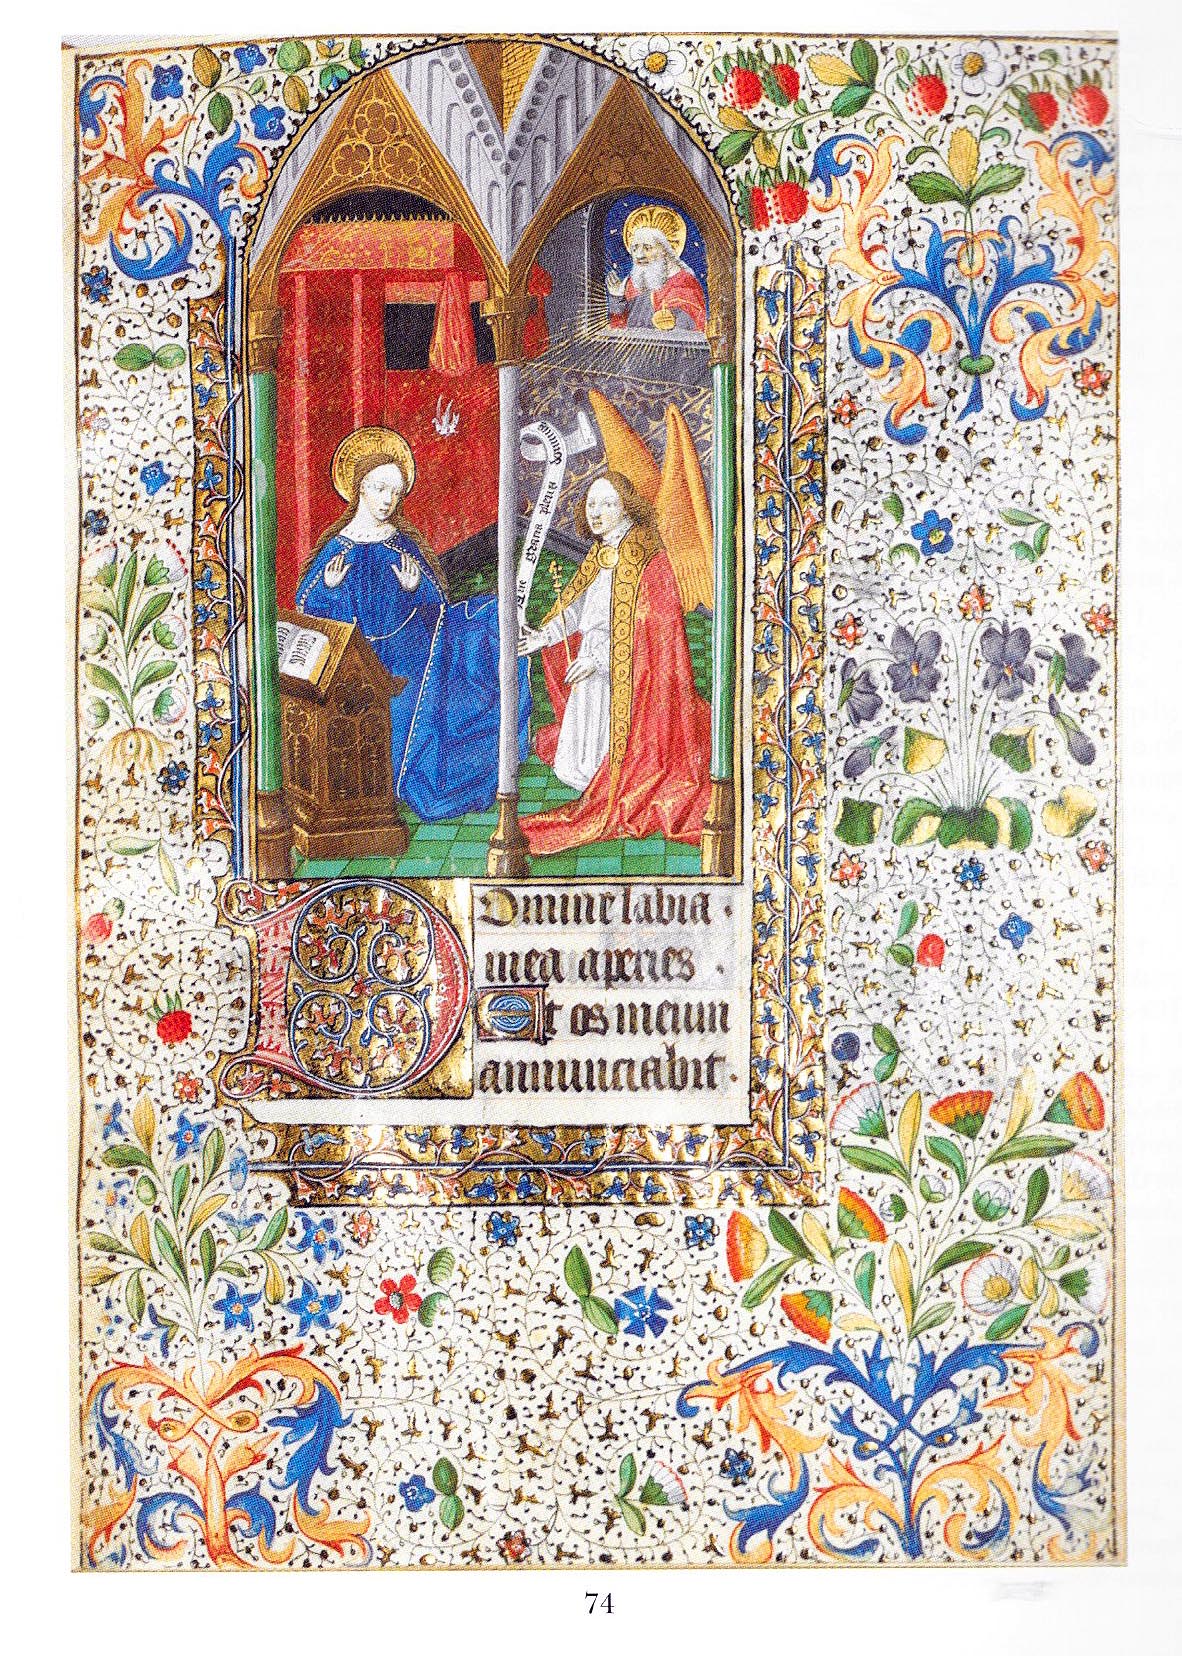 Aue Maria plena Dominus
Domine labia ·
mea aperies ·
Et os meum
annunciabit ·
74